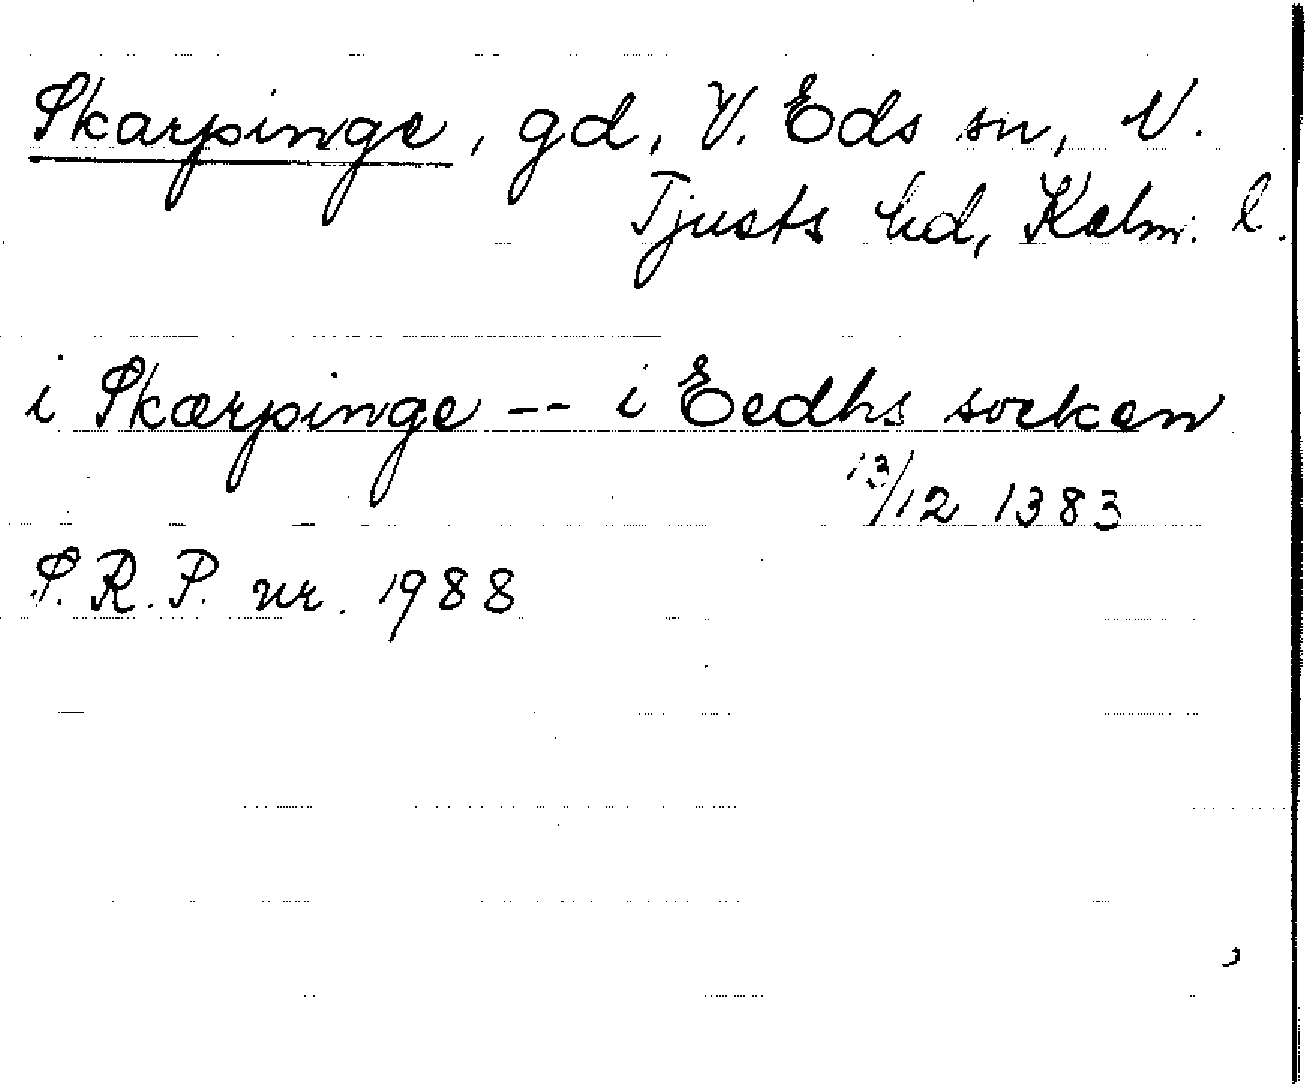 Skarpinge, gd, V. Eds sn, N.
Tjusts hd, Kalm. l.
i Skærpinge -- i Eedhs soekan
13/12 1383
S.R.P. nr. 1988